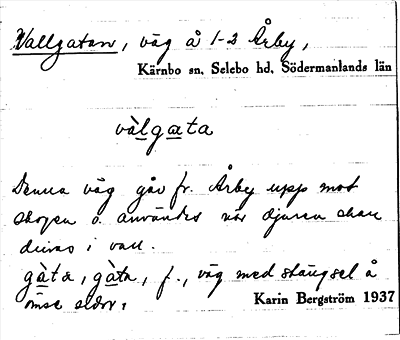 Vallgatan, väg å 1-2 Årby,
Kärnbo sn. Selebo hd. Södermanlands län
vàlgata
Denna väg går fr. Årby upp mot
skogen o. användes när djuren skau
drivas i vall.
gàta, gàta, f., väg med stängsel å
ömse sidor.
Karin Bergström 1937